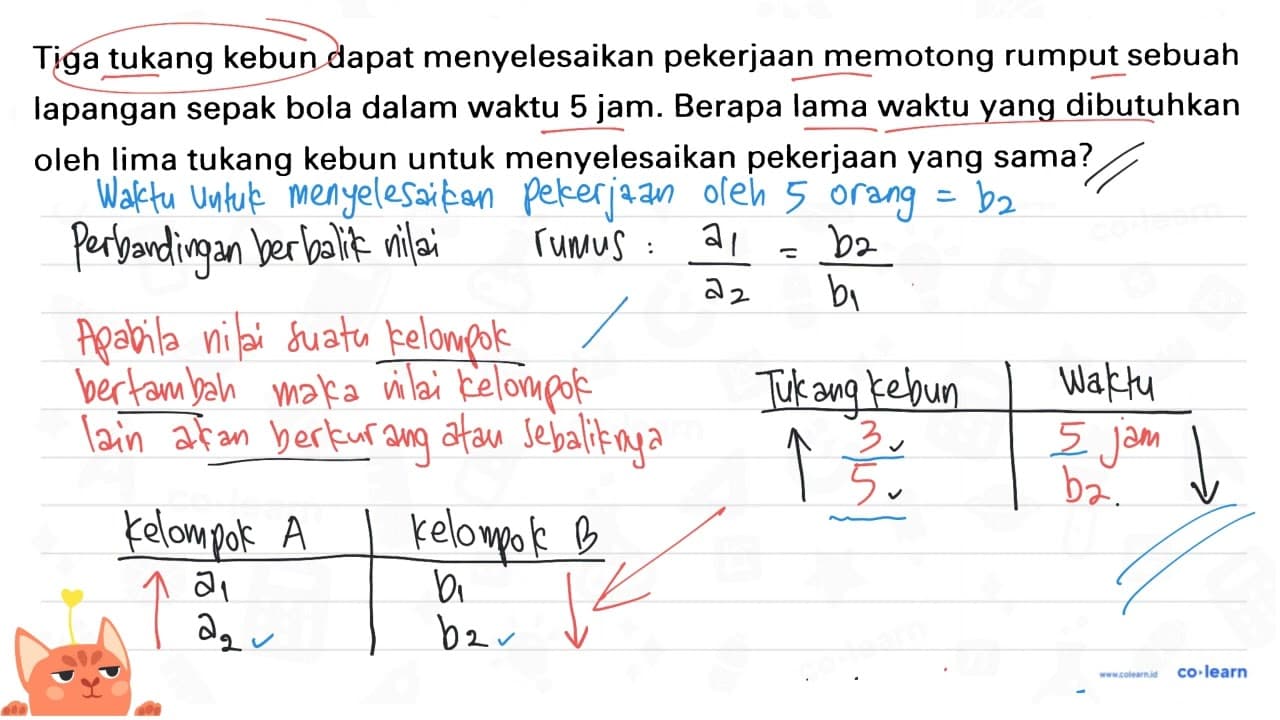 Tiga tukang kebun dapat menyelesaikan pekerjaan memotong rumput sebuah
lapangan sepak bola dalam waktu 5 jam. Berapa lama waktu yang dibutuhkan
oleh lima tukang kebun untuk menyelesaikan pekerjaan yang sama?
Waktu untuk menyelesaikan pekerjaan oleh 5 orang = b2
Perbandingan berbalik nilai rumus : a1/a2 = b2/b1
Apabila nilai suatu kelompok
bertambah maka nilai kelompok
lain akan berkurang atau sebaliknya
Tukang kebun Waktu
3 5 jam
5 b2.
Kelompok A Kelompok B
a1 b1
a2 b2
www.colearn.id co·learn